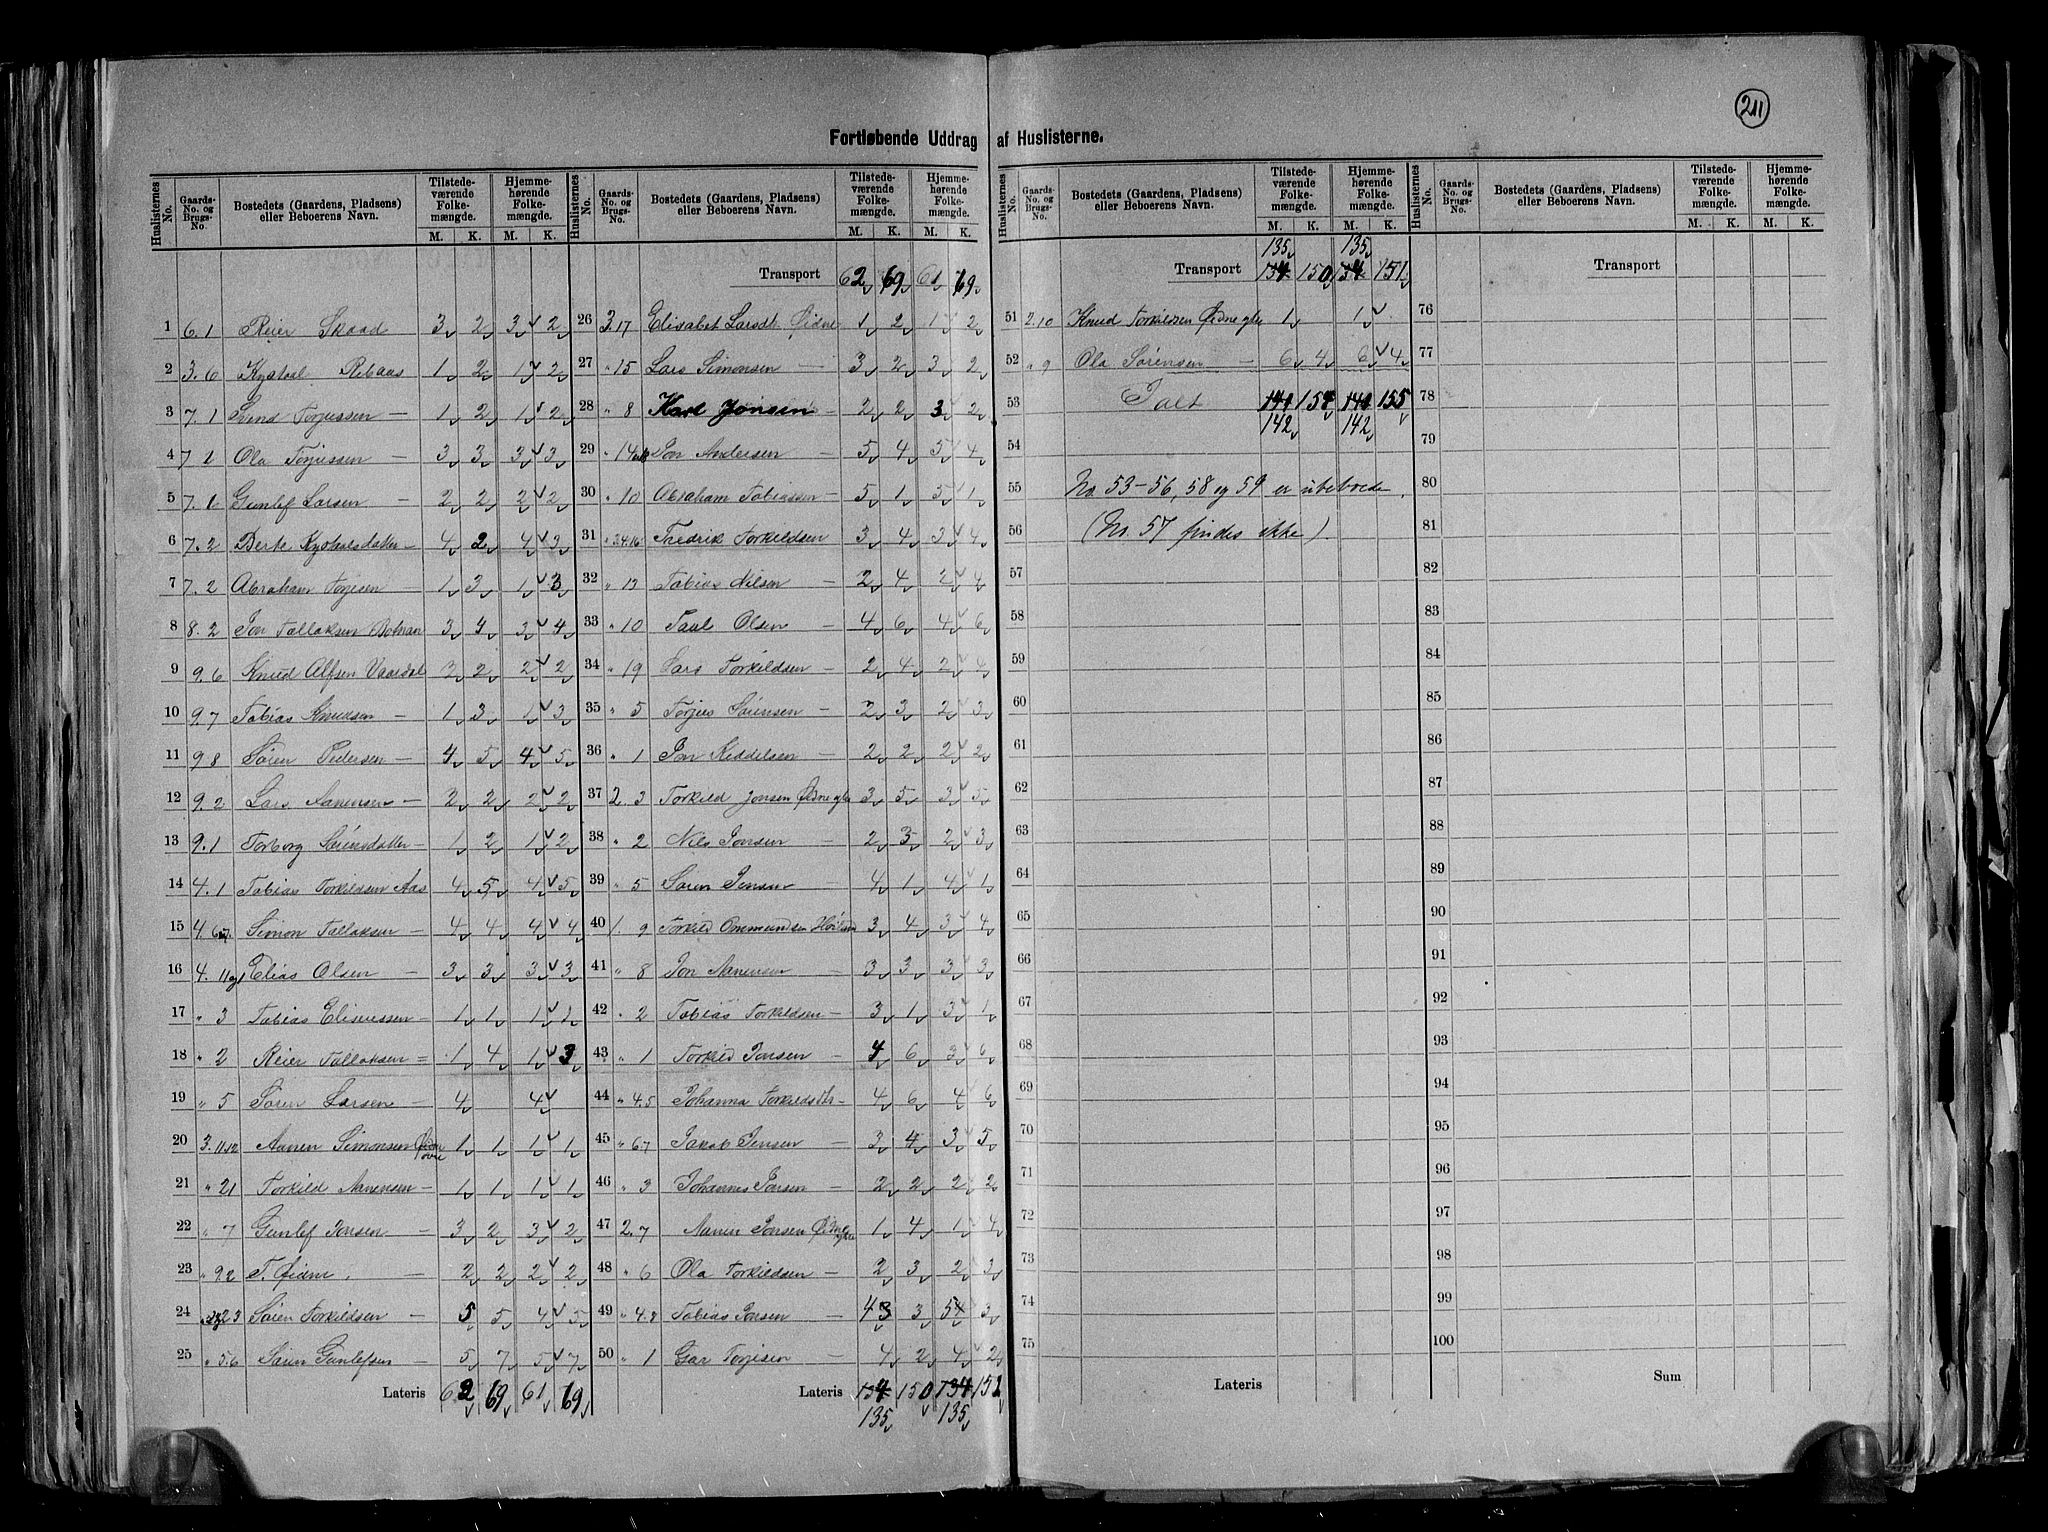 211
Fortløbende Uddrag af Huslisterne.
Huslisternes No. Gaards-No. og Brugs-No. Bostedets (Gaardens, Pladsens) eller Beboerens Navn. Tilstedeværende Folkemængde. M. K. Hjemmehørende Folkemængde. M. K.
1 6.1 Reier Skaad 3 2 3 2
2 3.6 Kystol Ribaas 1 2 1 2
3 7.1 Torjussen — 1 2 1 2
4 7 1 Ola Torjussen — 3 3 3 3
5 7.1 Gunlef Larsen — 2 2 2 2
6 7.2 Berte Kystolsdatter — 4 2 4 3
7 7.2 Abraham Torjesen 1 3 1 3
8 8.2 Jon Tallaksen 3 4 3 4
9 9.6 Knud Alfsen Vaardal 3 2 2 2
10 9.7 Tobias Knutsen — 1 3 1 3
11 9.8 Søren Pedersen — 4 5 4 5
12 9.2 Lars Aanensen — 2 2 2 2
13 9.1 Torborg — 1 2 1 2
14 4.1 Tobias Torkildsen Aas 4 5 4 5
15 4.6.7 Simon Tallaksen — 4 4 4 4
16 4. Elias Olsen — 3 3 3 3
17 " 3 Tobias Eliseussen — 1 1 1 1
18 " 2 Reier Tallaksen = 1 4 1 3
19 " 5 Søren Larsen — 4 4
20 3.11.12 Aanen Simonsen Øidne øvre 1 1 1 1
21 " 21 Torkild Aanensen — 1 1 1 1
22 " 7 Gunlef Jonsen — 3 2 3 2
23 " 9.2 T. Øidne — 2 2 2 2
24 Søren Torkildsen — 5 5 4 5
25 " 5.6 Søren Gunlefsen — 5 7 5 7
Lateris 62 69 61 69
Huslisternes No. Gaards-No. og Brugs-No. Bostedets (Gaardens, Pladsens) eller Beboerens Navn. Tilstedeværende Folkemængde. M. K. Hjemmehørende Folkemængde. M. K.
Transport 62 69 61 69
26 3.17 Elisabet Larsdt. Øidne 1 2 1 2
27 " 15 Lars Simonsen — 3 2 3 2
28 " 8 Karl Jonsen — 2 2 3 2
29 " 14 Jon Andersen — 5 4 5 4
30 " 10 Abraham Tobiassen — 5 1 5 1
31 Fredrik Torkildsen 3 4 3 4
32 " 13 Tobias Nilsen — 2 4 2 4
33 " 10 Taal Olsen — 4 6 4 6
34 " 19 Lars Torkildsen — 2 4 2 4
35 " 5 Torjus Sørensen — 2 3 2 3
36 " 1 Jon Keddelsen — 2 2 2 2
37 2.3 Torkild Jonsen Øidne ytre 3 5 3 5
38 " 2 Nils Jonsen — 2 3 2 3
39 " 5 Søren Jensen 4 1 4 1
40 1.9 Torkild Ommundsen 3 4 3 4
41 " 8 Jon Aanensen — 3 3 3 3
42 " 2 Tobias Torkildsen — 3 1 3 1
43 " 1 Torkild Jonsen — 4 6 3 6
44 " 4.5 Johanna Torkildsdtr — 4 6 4 6
45 " 6.7 Jakob Jensen — 3 4 3 5
46 " 3 Johannes Jonsen — 2 2 2 2
47 2.7 Aanen Jonsen Øidne ytre 1 4 1 4
48 " 6 Ola Torkildsen — 2 3 2 3
49 " 4.8 Tobias Jonsen — 43 3 54 3
50 " 1 Torjesen — 4 2 4 2
Lateris 134 150 134 151
135 135
Huslisternes No. Gaards-No. og Brugs-No. Bostedets (Gaardens, Pladsens) eller Beboerens Navn. Tilstedeværende Folkemængde. M. K. Hjemmehørende Folkemængde. M. K.
135 135
Transport 134 150 134 151
51 2.10 Knud Torkildsen Øidne ytre 1 1
52 " 9 Ola Sørensen — 6 4 6 4
53 Ialt 141 154 141 155
142 142
54
55 No. 53-56, 58 og 59 er ubeboede.
56 (No. 57 findes ikke).
57
58
59
60
61
62
63
64
65
66
67
68
69
70
71
72
73
74
75
Lateris
Huslisternes No. Gaards-No. og Brugs-No. Bostedets (Gaardens, Pladsens) eller Beboerens Navn. Tilstedeværende Folkemængde. M. K. Hjemmehørende Folkemængde. M. K.
Transport
76
77
78
79
80
81
82
83
84
85
86
87
88
89
90
91
92
93
94
95
96
97
98
99
100
Sum